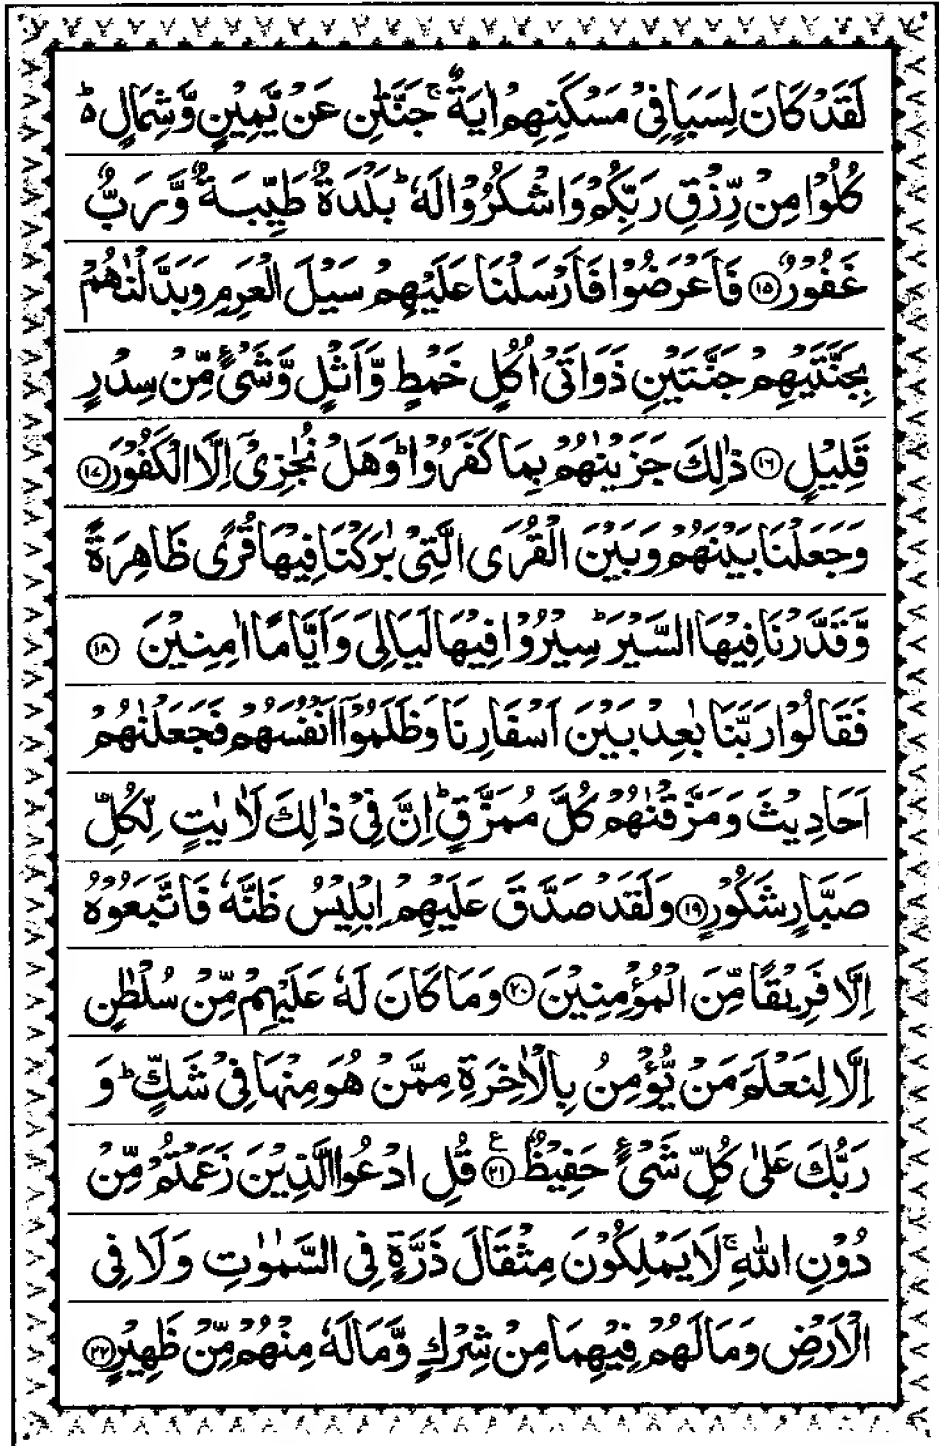 لَقَدْ كَانَ لِسَبَاٍ فِیْ مَسْكَنِهِمْ اٰیَةٌ ۚ جَنَّتٰنِ عَنْ یَّمِیْنٍ وَّشِمَالٍ ۬ؕ
كُلُوْا مِنْ رِّزْقِ رَبِّكُمْ وَاشْكُرُوْا لَهٗ ؕ بَلْدَةٌ طَیِّبَةٌ وَّرَبٌّ
غَفُوْرٌ ۝۱۵ فَاَعْرَضُوْا فَاَرْسَلْنَا عَلَیْهِمْ سَیْلَ الْعَرِمِ وَبَدَّلْنٰهُمْ
بِجَنَّتَیْهِمْ جَنَّتَیْنِ ذَوَاتَیْ اُكُلٍ خَمْطٍ وَّاَثْلٍ وَّشَیْءٍ مِّنْ سِدْرٍ
قَلِیْلٍ ۝۱۶ ذٰلِكَ جَزَیْنٰهُمْ بِمَا كَفَرُوْا ؕ وَهَلْ نُجٰزِیْۤ اِلَّا الْكَفُوْرَ ۝۱۷
وَجَعَلْنَا بَیْنَهُمْ وَبَیْنَ الْقُرَی الَّتِیْ بٰرَكْنَا فِیْهَا قُرًی ظَاهِرَةً
وَّقَدَّرْنَا فِیْهَا السَّیْرَ ؕ سِیْرُوْا فِیْهَا لَیَالِیَ وَاَیَّامًا اٰمِنِیْنَ ۝۱۸
فَقَالُوْا رَبَّنَا بٰعِدْ بَیْنَ اَسْفَارِنَا وَظَلَمُوْۤا اَنْفُسَهُمْ فَجَعَلْنٰهُمْ
اَحَادِیْثَ وَمَزَّقْنٰهُمْ كُلَّ مُمَزَّقٍ ؕ اِنَّ فِیْ ذٰلِكَ لَاٰیٰتٍ لِّكُلِّ
صَبَّارٍ شَكُوْرٍ ۝۱۹ وَلَقَدْ صَدَّقَ عَلَیْهِمْ اِبْلِیْسُ ظَنَّهٗ فَاتَّبَعُوْهُ
اِلَّا فَرِیْقًا مِّنَ الْمُؤْمِنِیْنَ ۝۲۰ وَمَا كَانَ لَهٗ عَلَیْهِمْ مِّنْ سُلْطٰنٍ
اِلَّا لِنَعْلَمَ مَنْ یُّؤْمِنُ بِالْاٰخِرَةِ مِمَّنْ هُوَ مِنْهَا فِیْ شَكٍّ ؕ وَ
رَبُّكَ عَلٰی كُلِّ شَیْءٍ حَفِیْظٌ ۝۲۱ ع قُلِ ادْعُوا الَّذِیْنَ زَعَمْتُمْ مِّنْ
دُوْنِ اللّٰهِ ۚ لَا یَمْلِكُوْنَ مِثْقَالَ ذَرَّةٍ فِی السَّمٰوٰتِ وَلَا فِی
الْاَرْضِ وَمَا لَهُمْ فِیْهِمَا مِنْ شِرْكٍ وَّمَا لَهٗ مِنْهُمْ مِّنْ ظَهِیْرٍ ۝۲۲